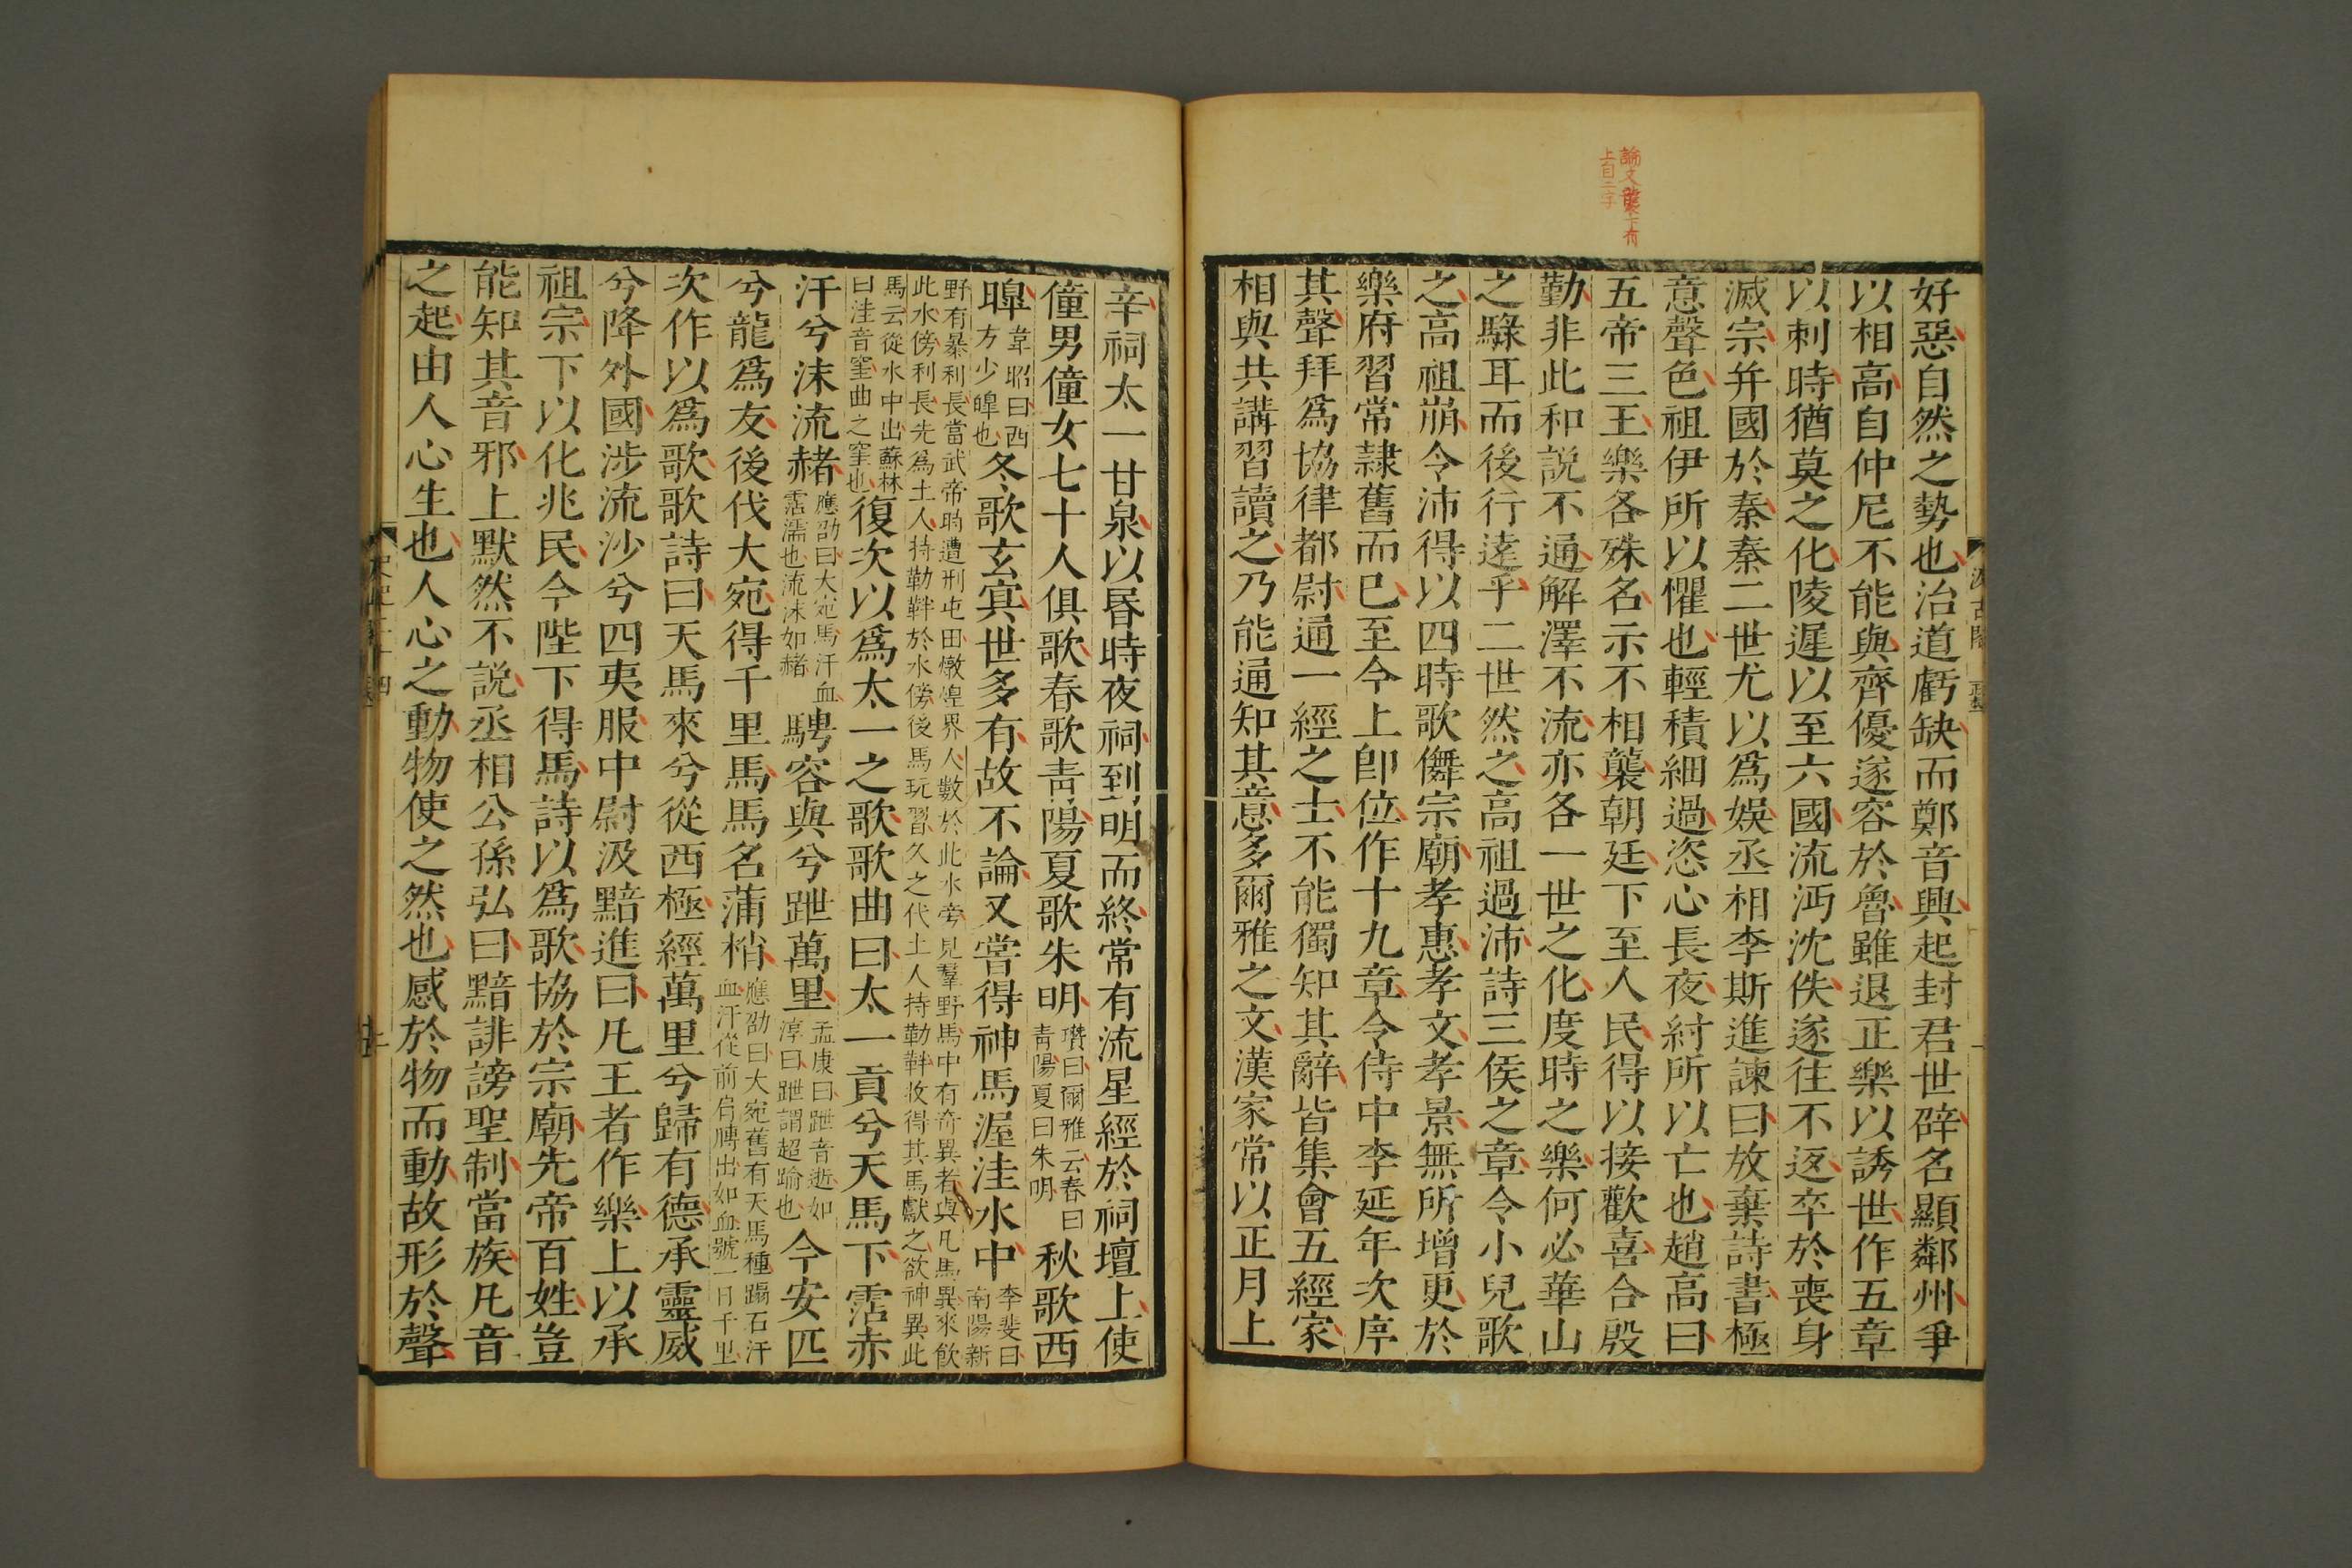 論文襲下有
上自二字
好惡自然之勢也治道虧缺而鄭音興起封君世辟名顯鄰州爭
以相高自仲尼不能與齊優遂容於魯雖退正樂以誘世作五章
以刺時猶莫之化陵遲以至六國流沔沈佚遂往不返卒於喪身
滅宗并國於秦秦二世尤以爲娛丞相李斯進諫曰放棄詩書極
意聲色祖伊所以懼也輕積細過恣心長夜紂所以亡也趙高曰
五帝三王樂各殊名示不相襲朝廷下至人民得以接歡喜合殷
勤非此和說不通解澤不流亦各一世之化度時之樂何必華山
之騄耳而後行逺乎二世然之高祖過沛詩三侯之章令小兒歌
之高祖崩令沛得以四時歌儛宗廟孝惠孝文孝景無所增更於
樂府習常隷舊而已至今上卽位作十九章令侍中李延年次序
其聲拜爲協律都尉通一經之士不能獨知其辭皆集會五經家
相與共講習讀之乃能通知其意多爾雅之文漢家常以正月上
辛祠太一甘泉以昬時夜祠到明而終常有流星經於祠壇上使
僮男僮女七十人俱歌春歌靑陽夏歌朱明瓚曰爾雅云春曰青陽夏曰朱明秋歌西
暤韋昭曰西方少暤也冬歌玄宾世多有故不論又嘗得神馬渥洼水中李斐曰南陽新
野有暴利長當武帝時遭刑屯田燉煌界人數於此水旁見羣野馬中有奇異者與凡馬異來飮
此水傍利長先爲土人持勒靽於水傍後馬玩習久之代土人持勒靽收得其馬獻之欲神異此
馬云從水中出蘇林曰洼音窐曲之窐也復次以爲太一之歌歌曲曰太一貢兮天馬下霑赤
汗兮沫流赭應劭曰大宛馬汗血霑濡也流沫如赭騁容與兮跇萬里孟康曰跇音逝如淳曰跇謂超踰也今安匹
兮龍爲友後伐大宛得千里馬馬名蒲梢應劭曰大宛舊有天馬種蹋石汗血汗從前肩膊出如血號一日千里
次作以爲歌歌詩曰天馬來兮從西極經萬里兮歸有德承靈威
兮降外國涉流沙兮四夷服中尉汲黯進曰凡王者作樂上以承
祖宗下以化兆民今陛下得馬詩以爲歌協於宗廟先帝百姓豈
能知其音邪上默然不說丞相公孫弘曰黯誹謗聖制當族凡音
之起由人心生也人心之動物使之然也感於物而動故形於聲